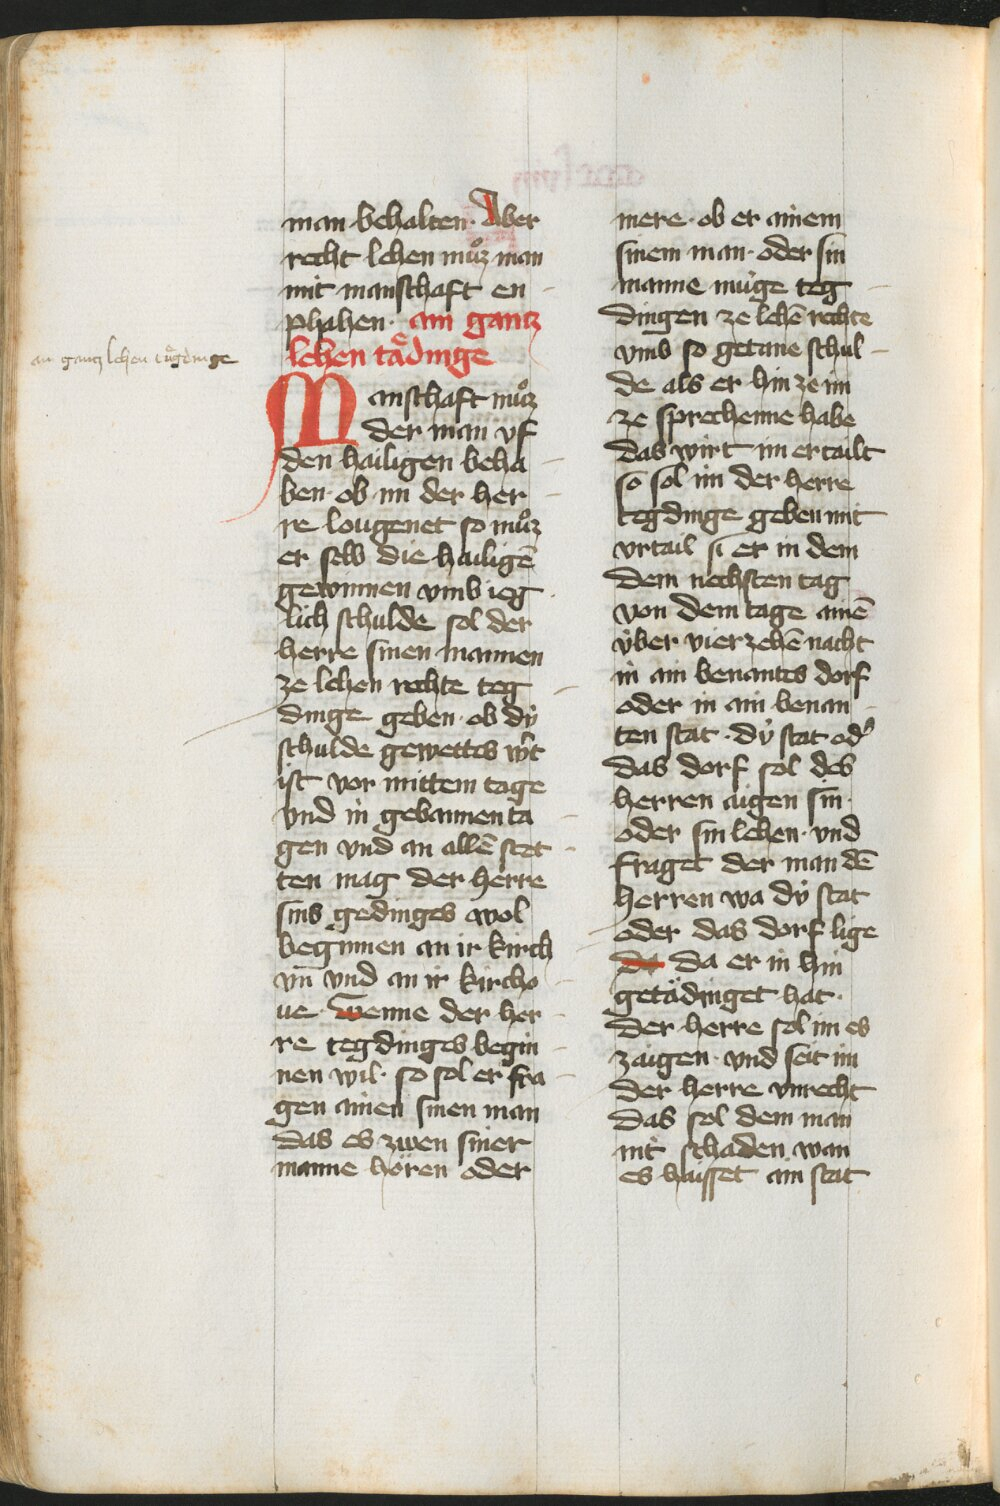 man behalten· Aber
recht lehen muͦz man
mit manschaft en
phahen· ain gantz
lehen taͤdinge
an gantz lehen taͤgdinge
Manschaft muͦz
der man vf
den hailigen beha
ben· ob im der her
re lougenet so muͦz
er selb die hailigē
gewinnen vmb ieg
lich schulde sol der
herre sinen mannen
ze lehen rechte teg
dinge geben· ob dÿ
schulde gewettes w̄t
ist vor mittem tage
vnd in gebannen ta
gen vnd an allē stet
ten mag der herre
sins gedinges wol
beginnen an ir kirch
vn̄ vnd an ir kircho
ue· Wenne der her
re tegdinges begin
nen wil· so sol er fra
gen ainen sinen man
das es zwen siner
manne hören oder
mere· ob er ainem
sinem man· oder sin
manne muge teg
dingen ze lehē rechte
vmb so getane schul
de als er hin ze im
ze sprechenne habe
das wirt im ertailt
so sol im der herre
tegdinge geben mit
vrtail si er in dem
dem nechsten tag
von dem tage ainē
v̈ber vierzehē nacht
in ain benantes dorf
oder in ain benan
ten stat· dÿ stat od̾
das dorf sol des
herren aigen sin·
oder sin lehen· vnd
fraget der man dē
herren wa dÿ stat
oder das dorf lige
da da er in hin
getädinget hat·
Der herre sol im es
zaigen· vnd seit im
der herre vnrecht
das sol dem man
nit schaden wan
es haisset ain stat